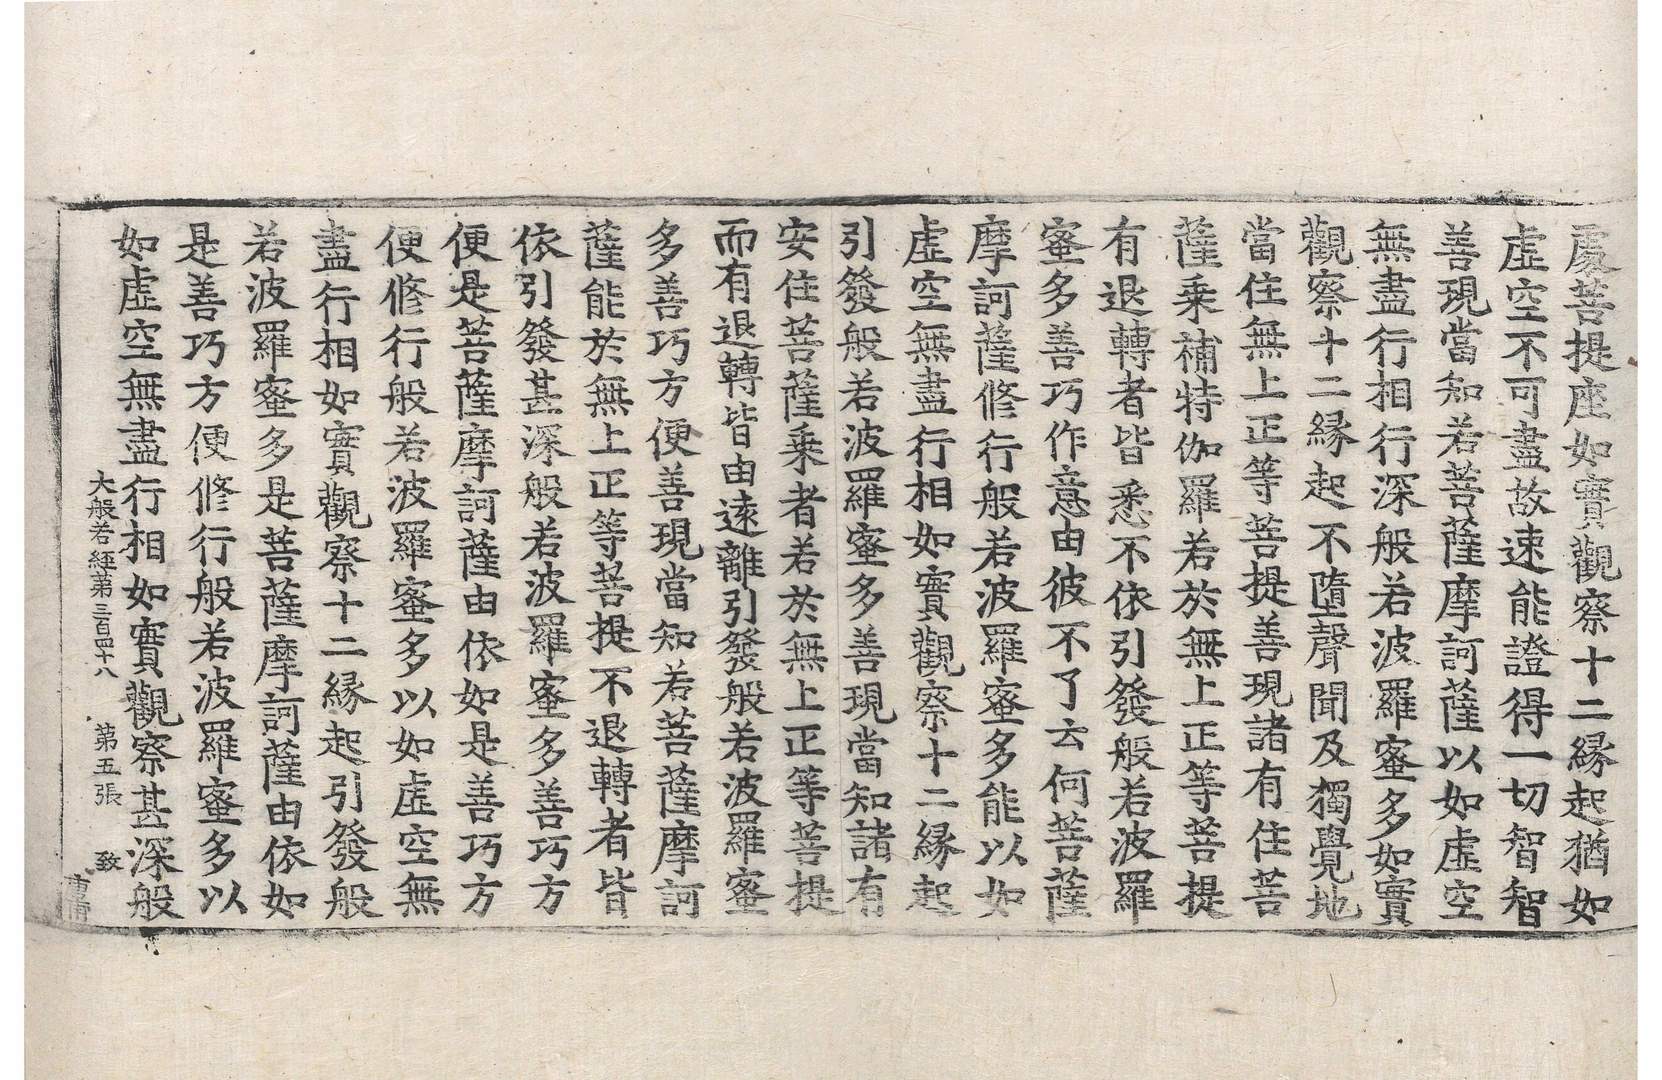 處菩提座如實觀察十二縁起猶如
虛空不可盡故速能證得一切智智
善現當知若菩薩摩訶薩以如虛空
無盡行相行深般若波羅蜜多如實
觀察十二縁起不墮聲聞及獨覺地
當住無上正等菩提善現諸有住菩
薩乘補特伽羅若於無上正等菩提
有退轉者皆悉不依引發般若波羅
蜜多善巧作意由彼不了云何菩薩
摩訶薩修行般若波羅蜜多能以如
虛空無盡行相如實觀察十二縁起
引發般若波羅蜜多善現當知諸有
安住菩薩乘者若於無上正等菩提
而有退轉皆由遠離引發般若波羅蜜
多善巧方便善現當知若菩薩摩訶
薩能於無上正等菩提不退轉者皆
依引發甚深般若波羅蜜多善巧方
便是菩薩摩訶薩由依如是善巧方
便修行般若波羅蜜多以如虛空無
盡行相如實觀察十二縁起引發般
若波羅蜜多是菩薩摩訶薩由依如
是善巧方便修行般若波羅蜜多以
如虛空無盡行相如實觀察甚深般
大般若經第三百四十八 第五張 致